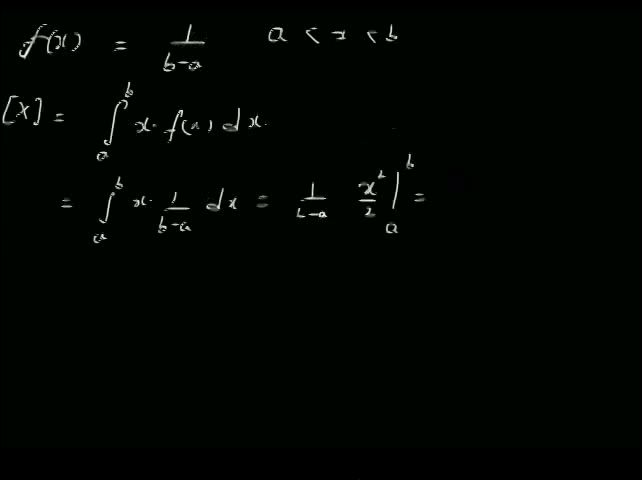 f(x) = 1/(b-a) a < x < b
[X] = ∫_a^b x · f(x) dx.
= ∫_a^b x · 1/(b-a) dx = 1/(b-a) x²/2 |_a^b =